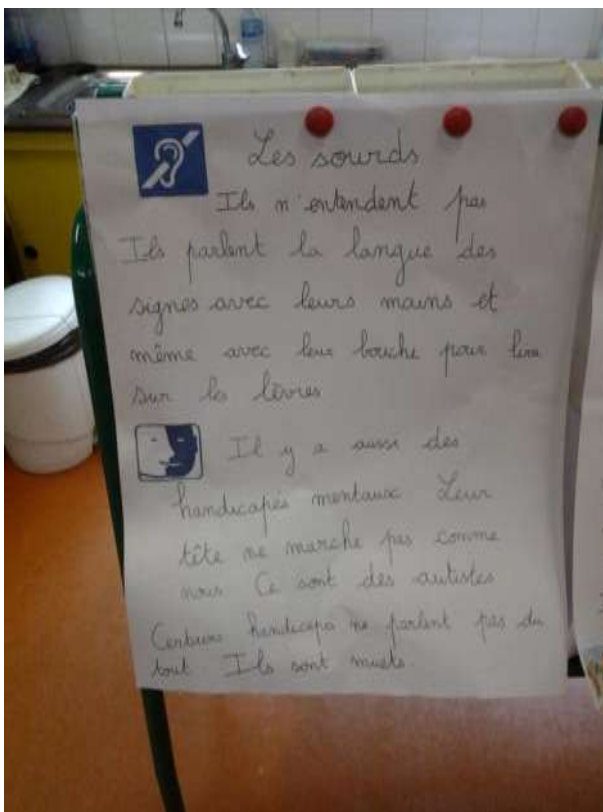 Les sourds
Ils n'entendent pas
Ils parlent la langue des
signes avec leurs mains et
même avec leur bouche pour lire
sur les lèvres
Il y a aussi des
handicapés mentaux Leur
tête ne marche pas comme
nous Ce sont des autistes
Certains handicapés ne parlent pas du
tout. Ils sont muets